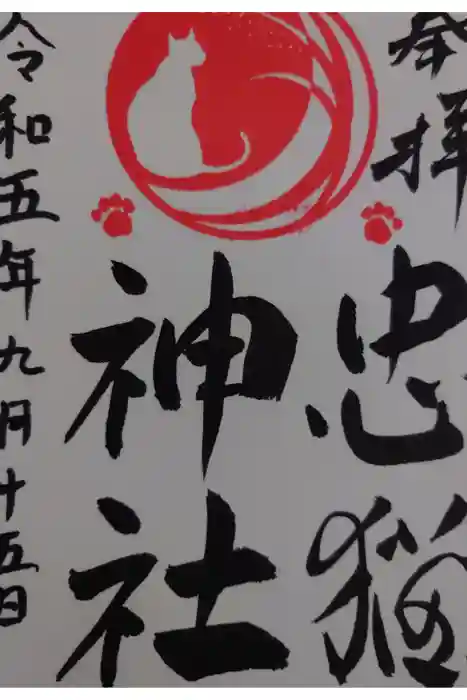 奉拝
忠猫
神社
令和五年九月十五日